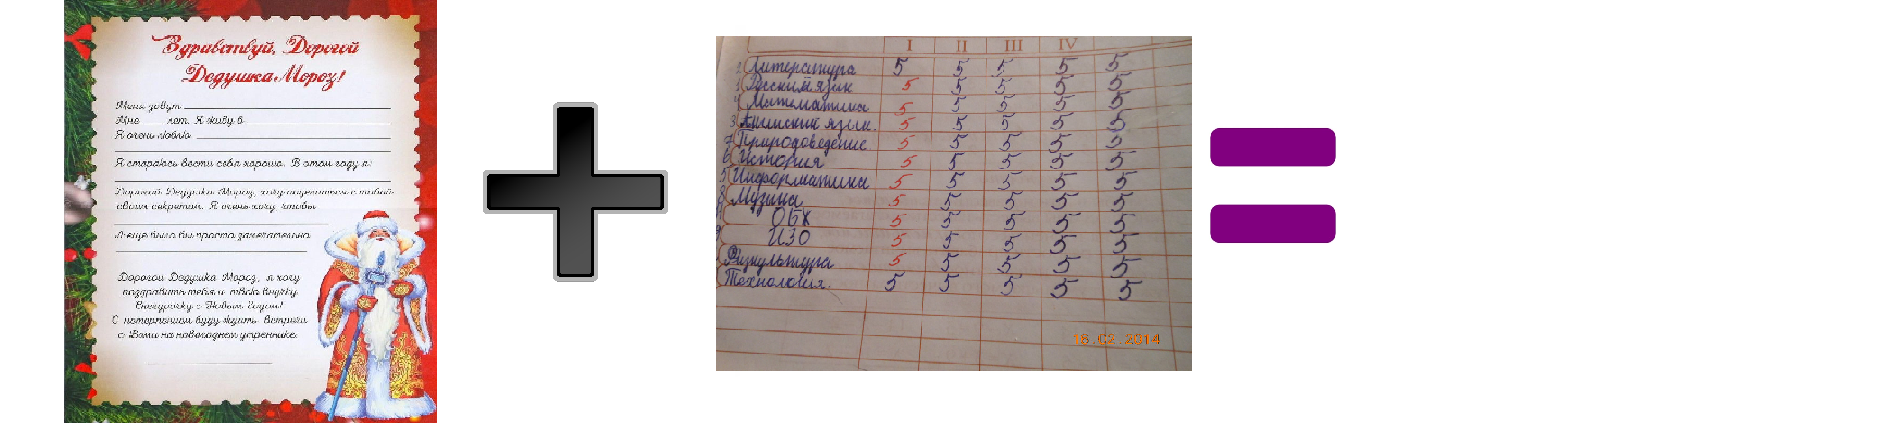 Здравствуй, Дорогой
Дедушка Мороз!
Меня зовут
Мне лет. Я живу в
Я очень люблю
Я стараюсь вести себя хорошо. В этом году я:
Дорогой Дедушка Мороз, хочу поделиться с тобой
своим секретом. Я очень хочу, чтобы
А еще было бы просто замечательно
Дорогой Дедушка Мороз, я хочу
поздравить тебя и твою внучку
Снегурочку с Новым Годом!
С нетерпением буду ждать встречи
с Вами на новогоднем утреннике.
I II III IV
Литература 5 5 5 5 5
Русский язык 5 5 5 5 5
Математика 5 5 5 5 5
Английский язык. 5 5 5 5 5
Природоведение 5 5 5 5 5
История 5 5 5 5 5
Информатика 5 5 5 5 5
Музыка 5 5 5 5 5
ОБЖ 5 5 5 5 5
ИЗО 5 5 5 5 5
Физкультура 5 5 5 5 5
Технология. 5 5 5 5 5
18.02.2014